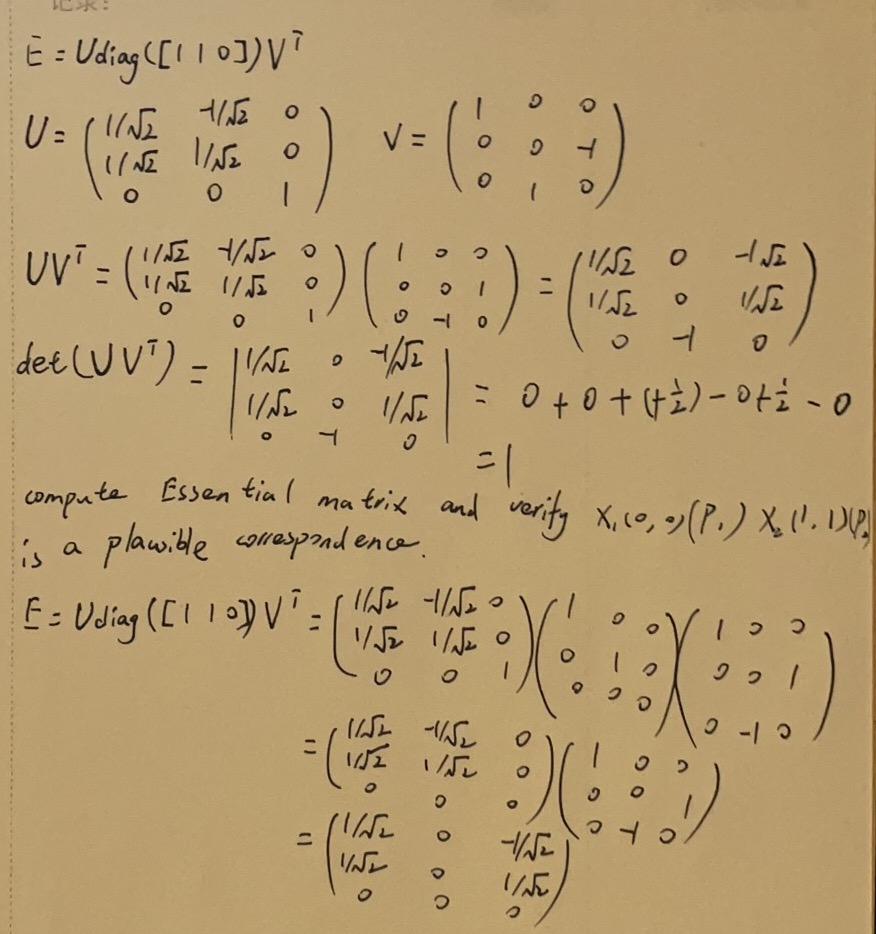 记录:
E = Udiag([1 1 0])V^T
U = (1/√2 -1/√2 0; 1/√2 1/√2 0; 0 0 1) V = (1 0 0; 0 0 -1; 0 1 0)
UV^T = (1/√2 -1/√2 0; 1/√2 1/√2 0; 0 0 1) (1 0 0; 0 0 1; 0 -1 0) = (1/√2 0 -1√2; 1/√2 0 1/√2; 0 -1 0)
det(UV^T) = |1/√2 0 -1/√2; 1/√2 0 1/√2; 0 -1 0| = 0 + 0 + (+1/2) - 0 + 1/2 - 0
= 1
compute Essential matrix and verify X₁(0,0)(P₁) X₂(1,1)(P₂)
is a plausible correspondence.
E = Udiag([1 1 0])V^T = (1/√2 -1/√2 0; 1/√2 1/√2 0; 0 0 1) (1 0 0; 0 1 0; 0 0 0) (1 0 0; 0 0 1; 0 -1 0)
= (1/√2 -1/√2 0; 1/√2 1/√2 0; 0 0 0) (1 0 0; 0 0 1; 0 -1 0)
= (1/√2 0 -1/√2; 1/√2 0 1/√2; 0 0 0)